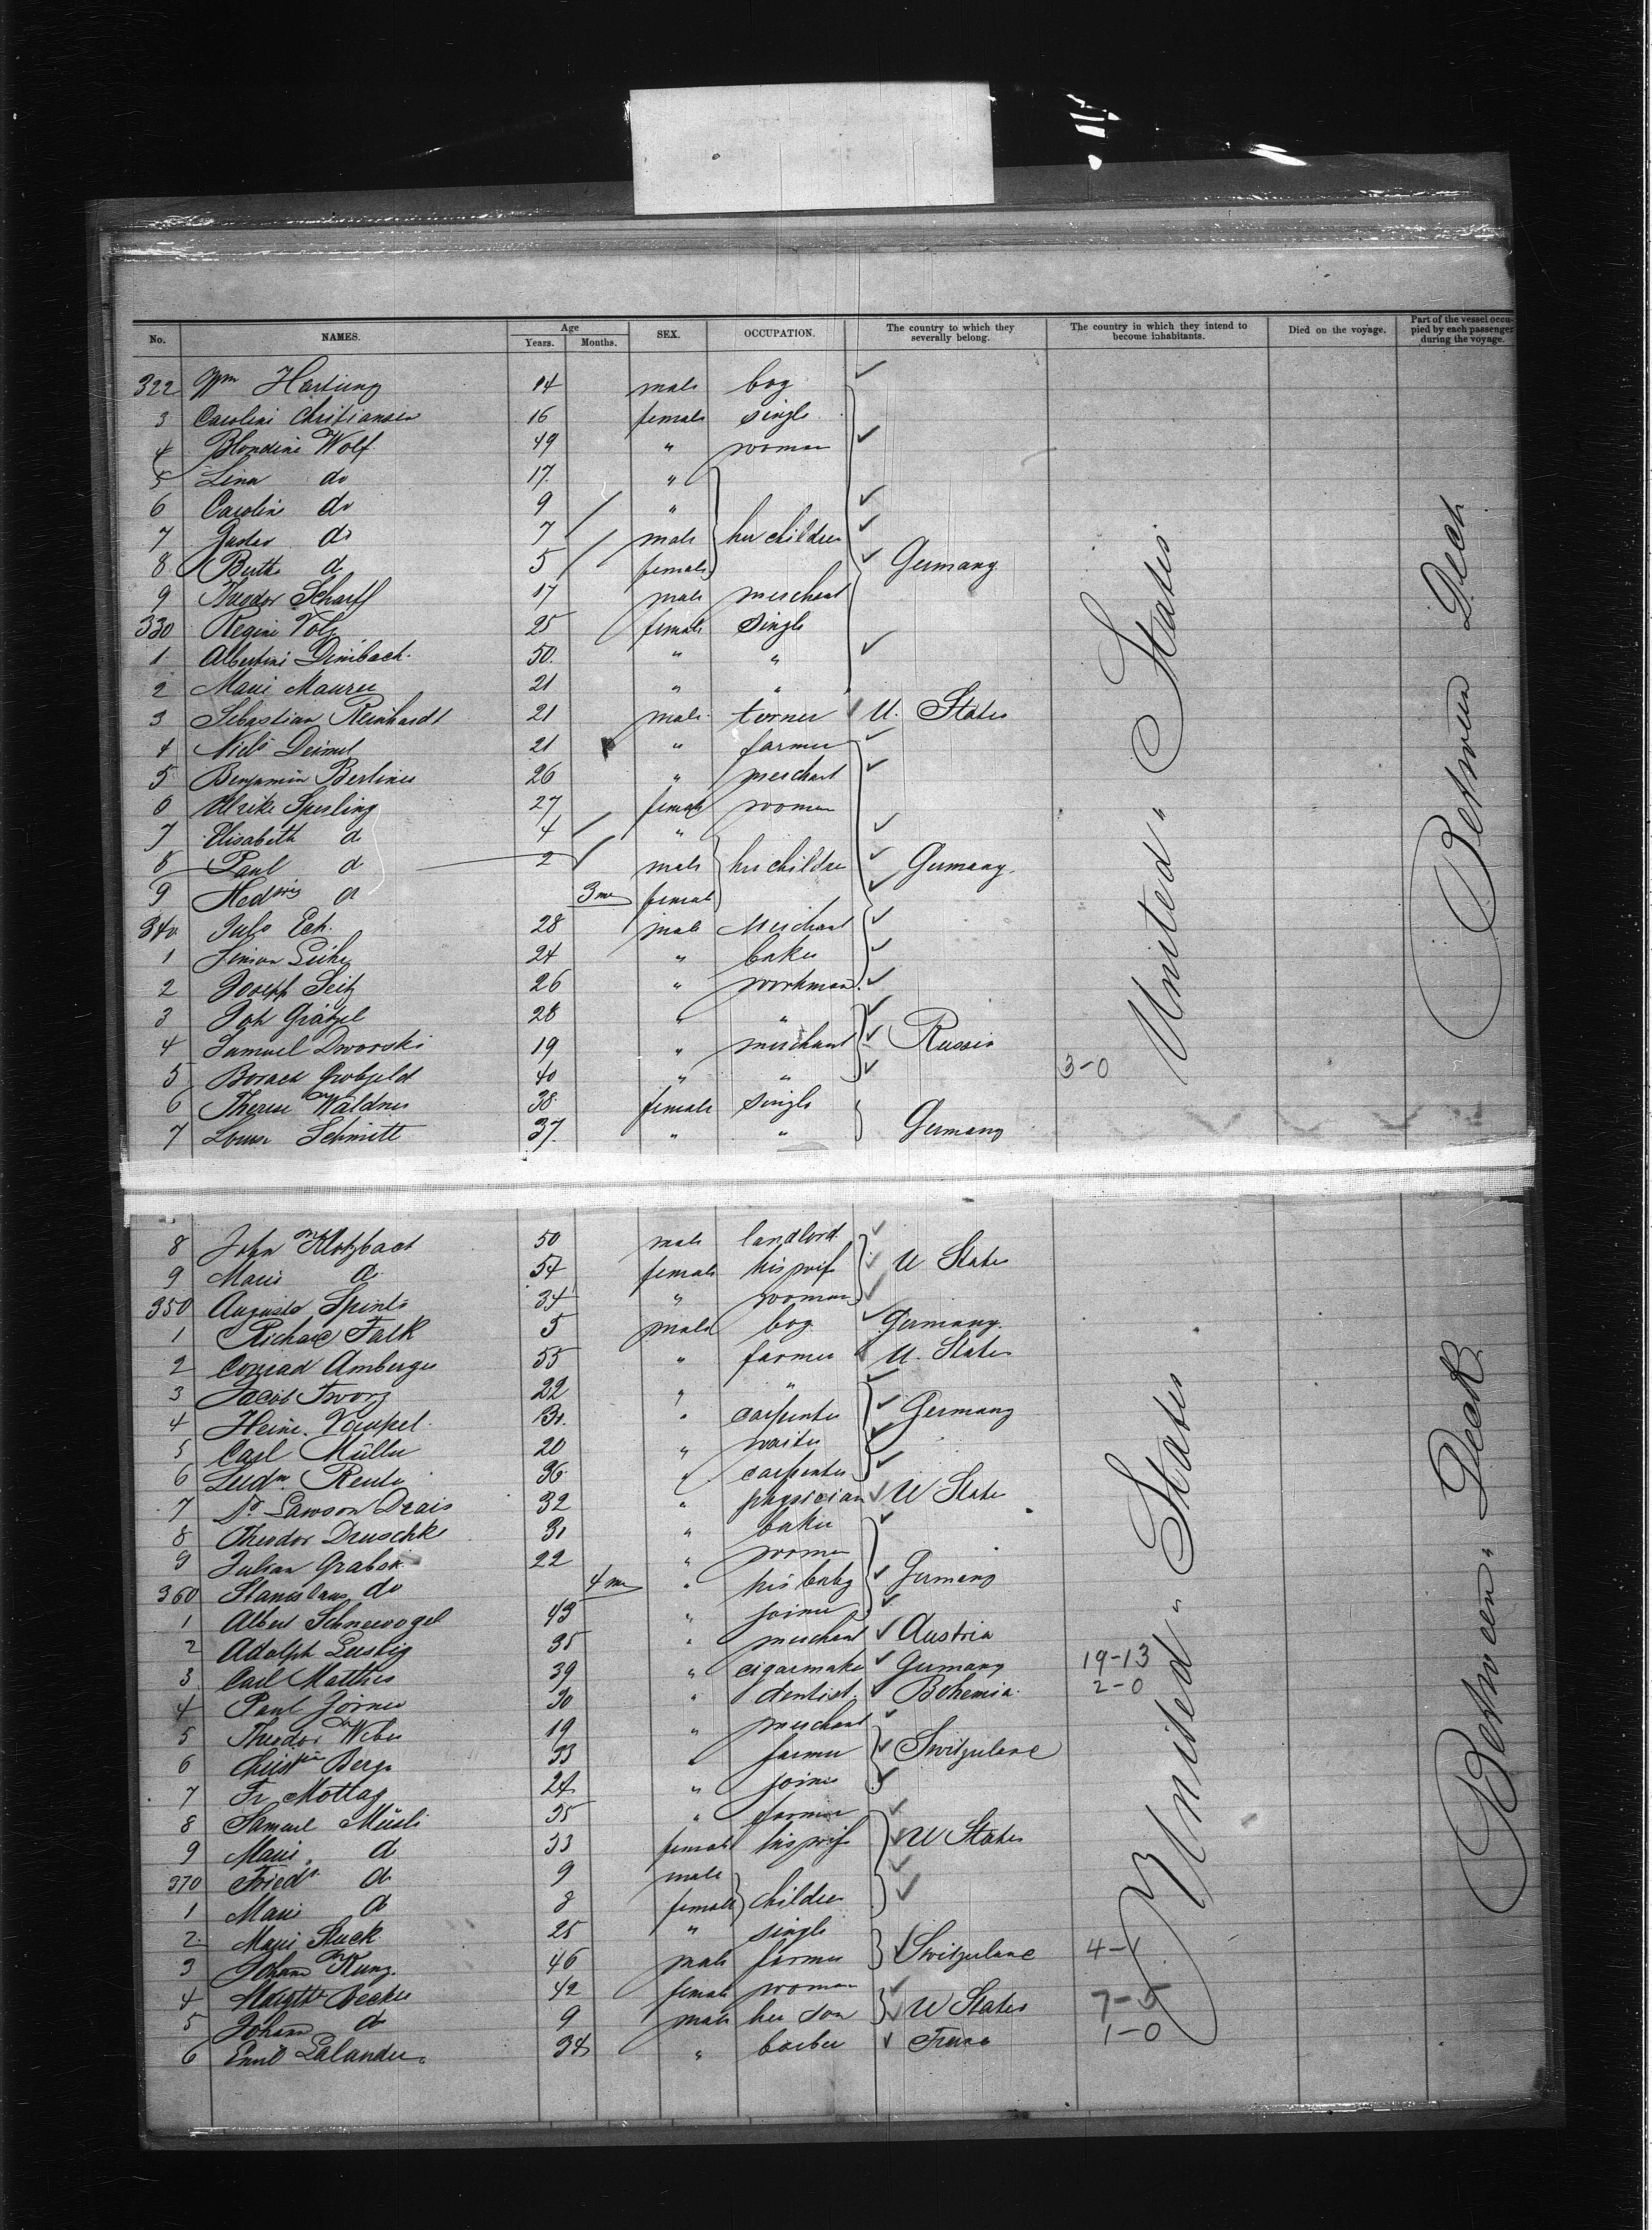 No. NAMES. Age Years. Months. SEX. OCCUPATION. The country to which they severally belong. The country in which they intend to become inhabitants. Died on the voyage. Part of the vessel occupied by each passenger during the voyage.
322 Wm Hartung 14 male boy
3 Caroline Christiansen 16 female single
4 Blondine Wolf 49 " woman
5 Lina do 17 "
6 Caroline do 9 "
7 Gustav do 7 male her children
8 Bertha do 5 female Germany
9 Theodor Scharff 17 male merchant
330 Regine 25 female single
1 Albertine Dimbach 50 " "
2 Marie Maurer 21 " "
3 Sebastian Reinhardt 21 male turner U. States
4 Niels 21 " farmer
5 Benjamin Berliner 26 " merchant
6 Ulrike Sperling 27 female woman
7 Elisabeth d 4 "
8 Paul d 2 male her children Germany.
9 Hedwig d 3 mo female
340 Juls Eck. 28 male Merchant
1 Simon 24 " baker
2 Joseph Seitz 26 " workman
3 Joh Grätzel 28 " "
4 Samuel Dworski 19 " merchant Russia
5 40 " " 3-0
6 Therese Waldner 38 female single
7 Louise Schmitt 37 " " Germany
United " States
Between Deck
8 John Klotzbach 50 male landlord
9 Marie do 54 female his wife U States
350 Auguste 34 " woman
1 Richard Falk 5 male boy Germany.
2 Conrad Amberger 55 " farmer U. States
3 Jacob 22 " "
4 Heinr. Vaupel 31 " carpenter Germany
5 Carl Müller 20 " waiter
6 Ludw. 36 " carpenter
7 Dr Lawson Drais 32 " physician U State
8 Theodor Druschke 31 " baker
9 Julian Grabski 22 " woman
360 Stanislaus do 4 mo " his baby Germany
1 Albert Schneevogel 43 " joiner
2 Adolph Lustig 35 " merchant Austria
3 Carl Matthies 39 " cigarmaker Germany 19-13
4 Paul 30 " dentist Bohemia 2-0
5 Theodor Weber 19 " merchant
6 33 " farmer Switzerland
7 Fr Mottaz 24 " joiner
8 Samuel Müsli 35 " farmer
9 Marie do 33 female his wife U States
370 Friedr do 9 male
1 Marie do 8 female children
2 Marie Stuck 25 " single
3 Johann Kunz. 46 male farmer Switzerland 4-1
4 Margth Becker 42 female woman
5 Johann do 9 male her son U States 7-5
6 Emil Lalander 34 " barber 1-0
United " States
Between " Deck